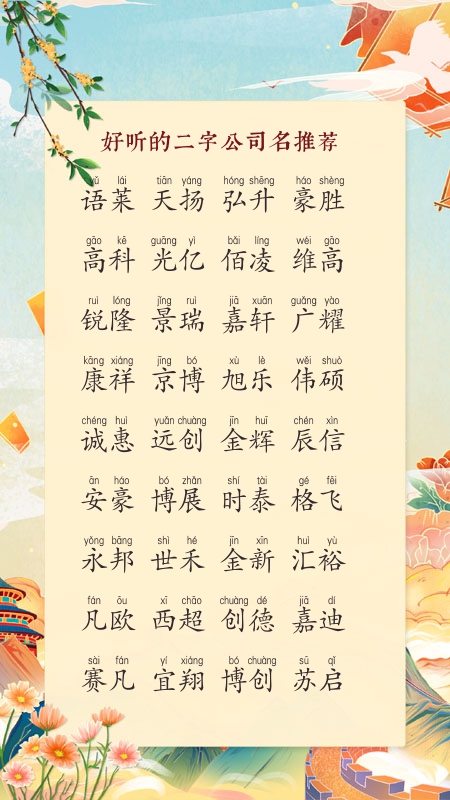 好听的二字公司名推荐
yǔ lái tiān yáng hóng shēng háo shèng
语莱 天扬 弘升 豪胜
gāo kē guāng yì bǎi líng wéi gāo
高科 光亿 佰凌 维高
ruì lóng jǐng ruì jiā xuān guǎng yào
锐隆 景瑞 嘉轩 广耀
kāng xiáng jīng bó xù lè wěi shuò
康祥 京博 旭乐 伟硕
chéng huì yuǎn chuàng jīn huī chén xìn
诚惠 远创 金辉 辰信
ān háo bó zhǎn shí tài gé fēi
安豪 博展 时泰 格飞
yǒng bāng shì hé jīn xīn huì yù
永邦 世禾 金新 汇裕
fán ōu xī chāo chuàng dé jiā dí
凡欧 西超 创德 嘉迪
sài fán yí xiáng bó chuàng sū qǐ
赛凡 宜翔 博创 苏启